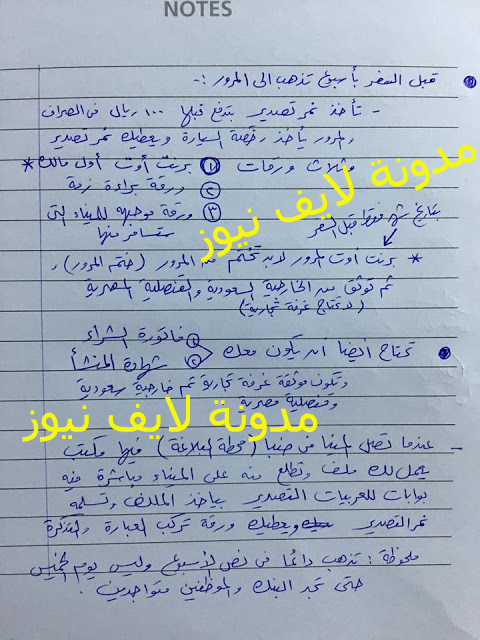 NOTES
قبل السفر بأسبوع تذهب الى المرور :-
- تأخذ نمر تصدير بتدفع قبلها ١٠٠ ريال في الصراف
والمرور يأخذ رخصة السيارة ويعطيك نمر تصدير
وثلاث ورقات ١ برنت أوت أول مالك *
٢ ورقة براءة ذمة
٣ ورقة موجهه للميناء التى
ستسافر منها
بتاريخ شهر فقط قبل السفر
* برنت اوت المرور لابد تختم من المرور (ختم المرور) و
ثم توثق من الخارجية السعودية والقنصلية المصرية
(لا تحتاج غرفة تجارية)
تحتاج أيضا أن يكون معك ١ فاتورة الشراء
٢ شهادة المنشأ
وتكون موثقة غرفة تجارية ثم خارجية سعودية
وقنصلية مصرية
- عندما تصل المينا في ضبا (محطة الملاغة) فيها مكتب
يعمل لك ملف وتطلع منه على الميناء مباشرة فيه
بوابات للعربيات التصدير بياخذ الملف وتسلمه
نمر التصدير ويعطيك ورقة تركب العبارة والتذكرة
ملحوظة : تذهب دائما في نص الأسبوع وليس يوم الخميس
حتى تجد البنك والموظفين متواجدين .
مدونة لايف نيوز
مدونة لايف نيوز